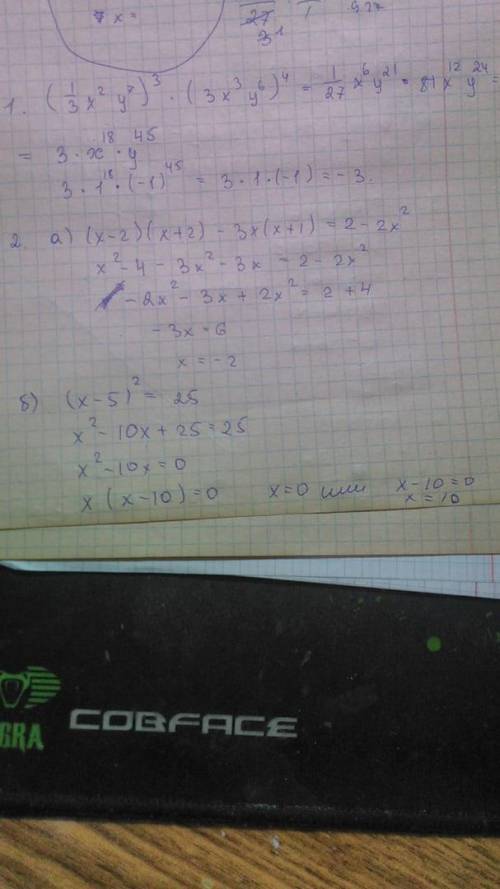 7 x =
27
3¹
1. (1/3 x² y⁷)³ · (3x³ y⁶)⁴ = 1/27 x⁶ y²¹ · 81 x¹² y²⁴ =
= 3 · x¹⁸ · y⁴⁵
3 · 1¹⁸ · (-1)⁴⁵ = 3 · 1 · (-1) = -3.
2. а) (x-2)(x+2) - 3x(x+1) = 2 - 2x²
x² - 4 - 3x² - 3x = 2 - 2x²
- 2x² - 3x + 2x² = 2 + 4
- 3x = 6
x = -2
б) (x-5)² = 25
x² - 10x + 25 = 25
x² - 10x = 0
x (x-10) = 0 x=0 или x-10=0
x=10
BRA
COBFACE